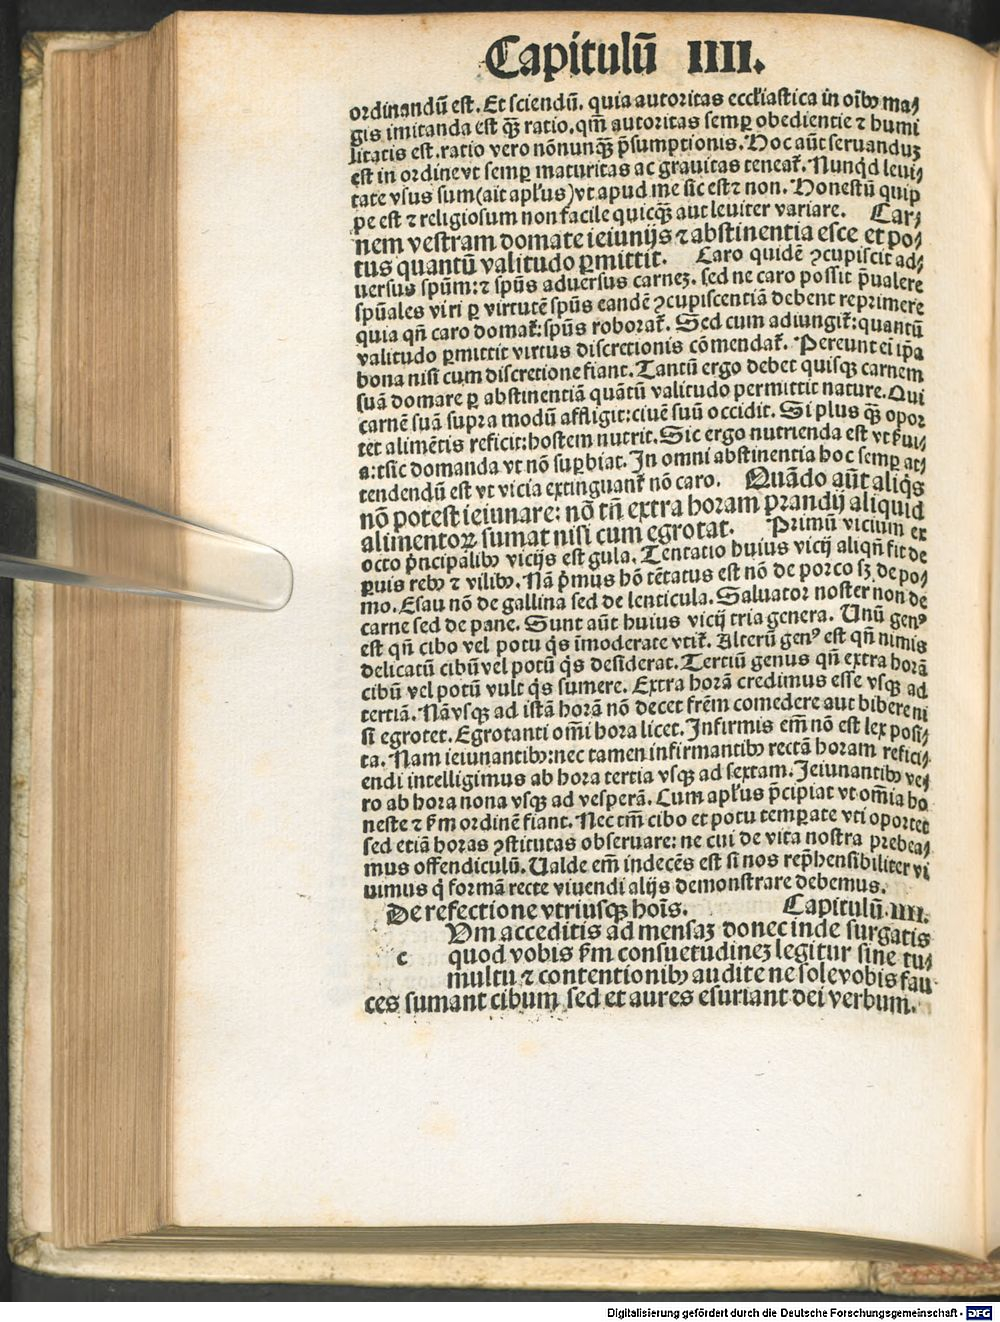 Capitulū IIII.
ordinandū est. Et sciendū. quia autoritas eccl'iastica in oībꝰ ma⸗
gis imitanda est qꝫ̄ ratio. qm̄ autoritas semꝑ obedientie ⁊ humi
litatis est. ratio vero nōnunqꝫ̄ p̄sumptionis. Hoc aūt seruanduꝫ
est in ordine vt semꝑ maturitas ac grauitas teneat᷑. Nunqͥd leui⸗
tate vsus sum (ait apl'us) vt apud me sic est ⁊ non. Honestū quip
pe est ⁊ religiosum non facile quicqꝫ̄ aut leuiter variare. Car⸗
nem vestram domate ieiunijs ⁊ abstinentia esce et po⸗
tus quantū valitudo ꝑmittit. Caro quidē ꝯcupiscit ad⸗
uersus spūm: ⁊ spūs aduersus carneꝫ. sed ne caro possit p̄ualere
spūales viri ꝑ virtutē spūs eandē ꝯcupiscentiā debent reprimere
quia qn̄ caro domat᷑: spūs roborat᷑. Sed cum adiungit᷑: quantū
valitudo ꝑmittit virtus discretionis cōmendat᷑. Pereunt ei ip̄a
bona nisi cum discretione fiant. Tantū ergo debet quisqꝫ carnem
suā domare ꝑ abstinentiā quātū valitudo permittit nature. Qui
carnē suā supra modū affligit: ciuē suū occidit. Si plus qꝫ̄ opor
tet alimētis reficit: hostem nutrit. Sic ergo nutrienda est vt s̄ui⸗
at: sic domanda vt nō suꝑbiat. In omni abstinentia hoc semꝑ at⸗
tendendū est vt vicia extinguant᷑ nō caro. Quādo aūt aliqͥs
nō potest ieiunare: nō tn̄ extra horam prandij aliquid
alimentoꝝ sumat nisi cum egrotat. Primū vicium ex
octo p̄ncipalibꝰ vicijs est gula. Tentatio huius vicij aliqn̄ fit de
ꝑuis rebꝰ ⁊ vilibꝰ. Nā p̄mus hō tētatus est nō de porco sꝫ de po⸗
mo. Esau nō de gallina sed de lenticula. Saluator noster non de
carne sed de pane. Sunt aūt huius vicij tria genera. Unū genꝰ
est qn̄ cibo vel potu qͥs īmoderate vtit᷑. Alterū genꝰ est qn̄ nimis
delicatū cibū vel potū qͥs desiderat. Tertiū genus qn̄ extra horā
cibū vel potū vult qͥs sumere. Extra horā credimus esse vsqꝫ ad
tertiā. Nā vsqꝫ ad istā horā nō decet frēm comedere aut bibere ni
si egrotet. Egrotanti om̄i hora licet. Infirmis em̄ nō est lex posi⸗
ta. Nam ieiunantibꝰ: nec tamen infirmantibꝰ rectā horam refici⸗
endi intelligimus ab hora tertia vsqꝫ ad sextam. Ieiunantibꝰ ve⸗
ro ab hora nona vsqꝫ ad vesperā. Cum apl'us p̄cipiat vt om̄ia ho
neste ⁊ s̄m ordinē fiant. Nec tm̄ cibo et potu temꝑate vti oportet
sed etiā horas ꝯstitutas obseruare: ne cui de vita nostra prebea⸗
mus offendiculū. Ualde em̄ indecēs est si nos rep̄hensibiliter vi
uimus qͥ formā recte viuendi alijs demonstrare debemus.
De refectione vtriusqꝫ hoīs. Capitulū .IIII.
c Um acceditis ad mensaꝫ donec inde surgatis
quod vobis s̄m consuetudineꝫ legitur sine tu⸗
multu ⁊ contentionibꝰ audite ne sole vobis fau
ces sumant cibum sed et aures esuriant dei verbum.
Digitalisierung gefördert durch die Deutsche Forschungsgemeinschaft - DFG